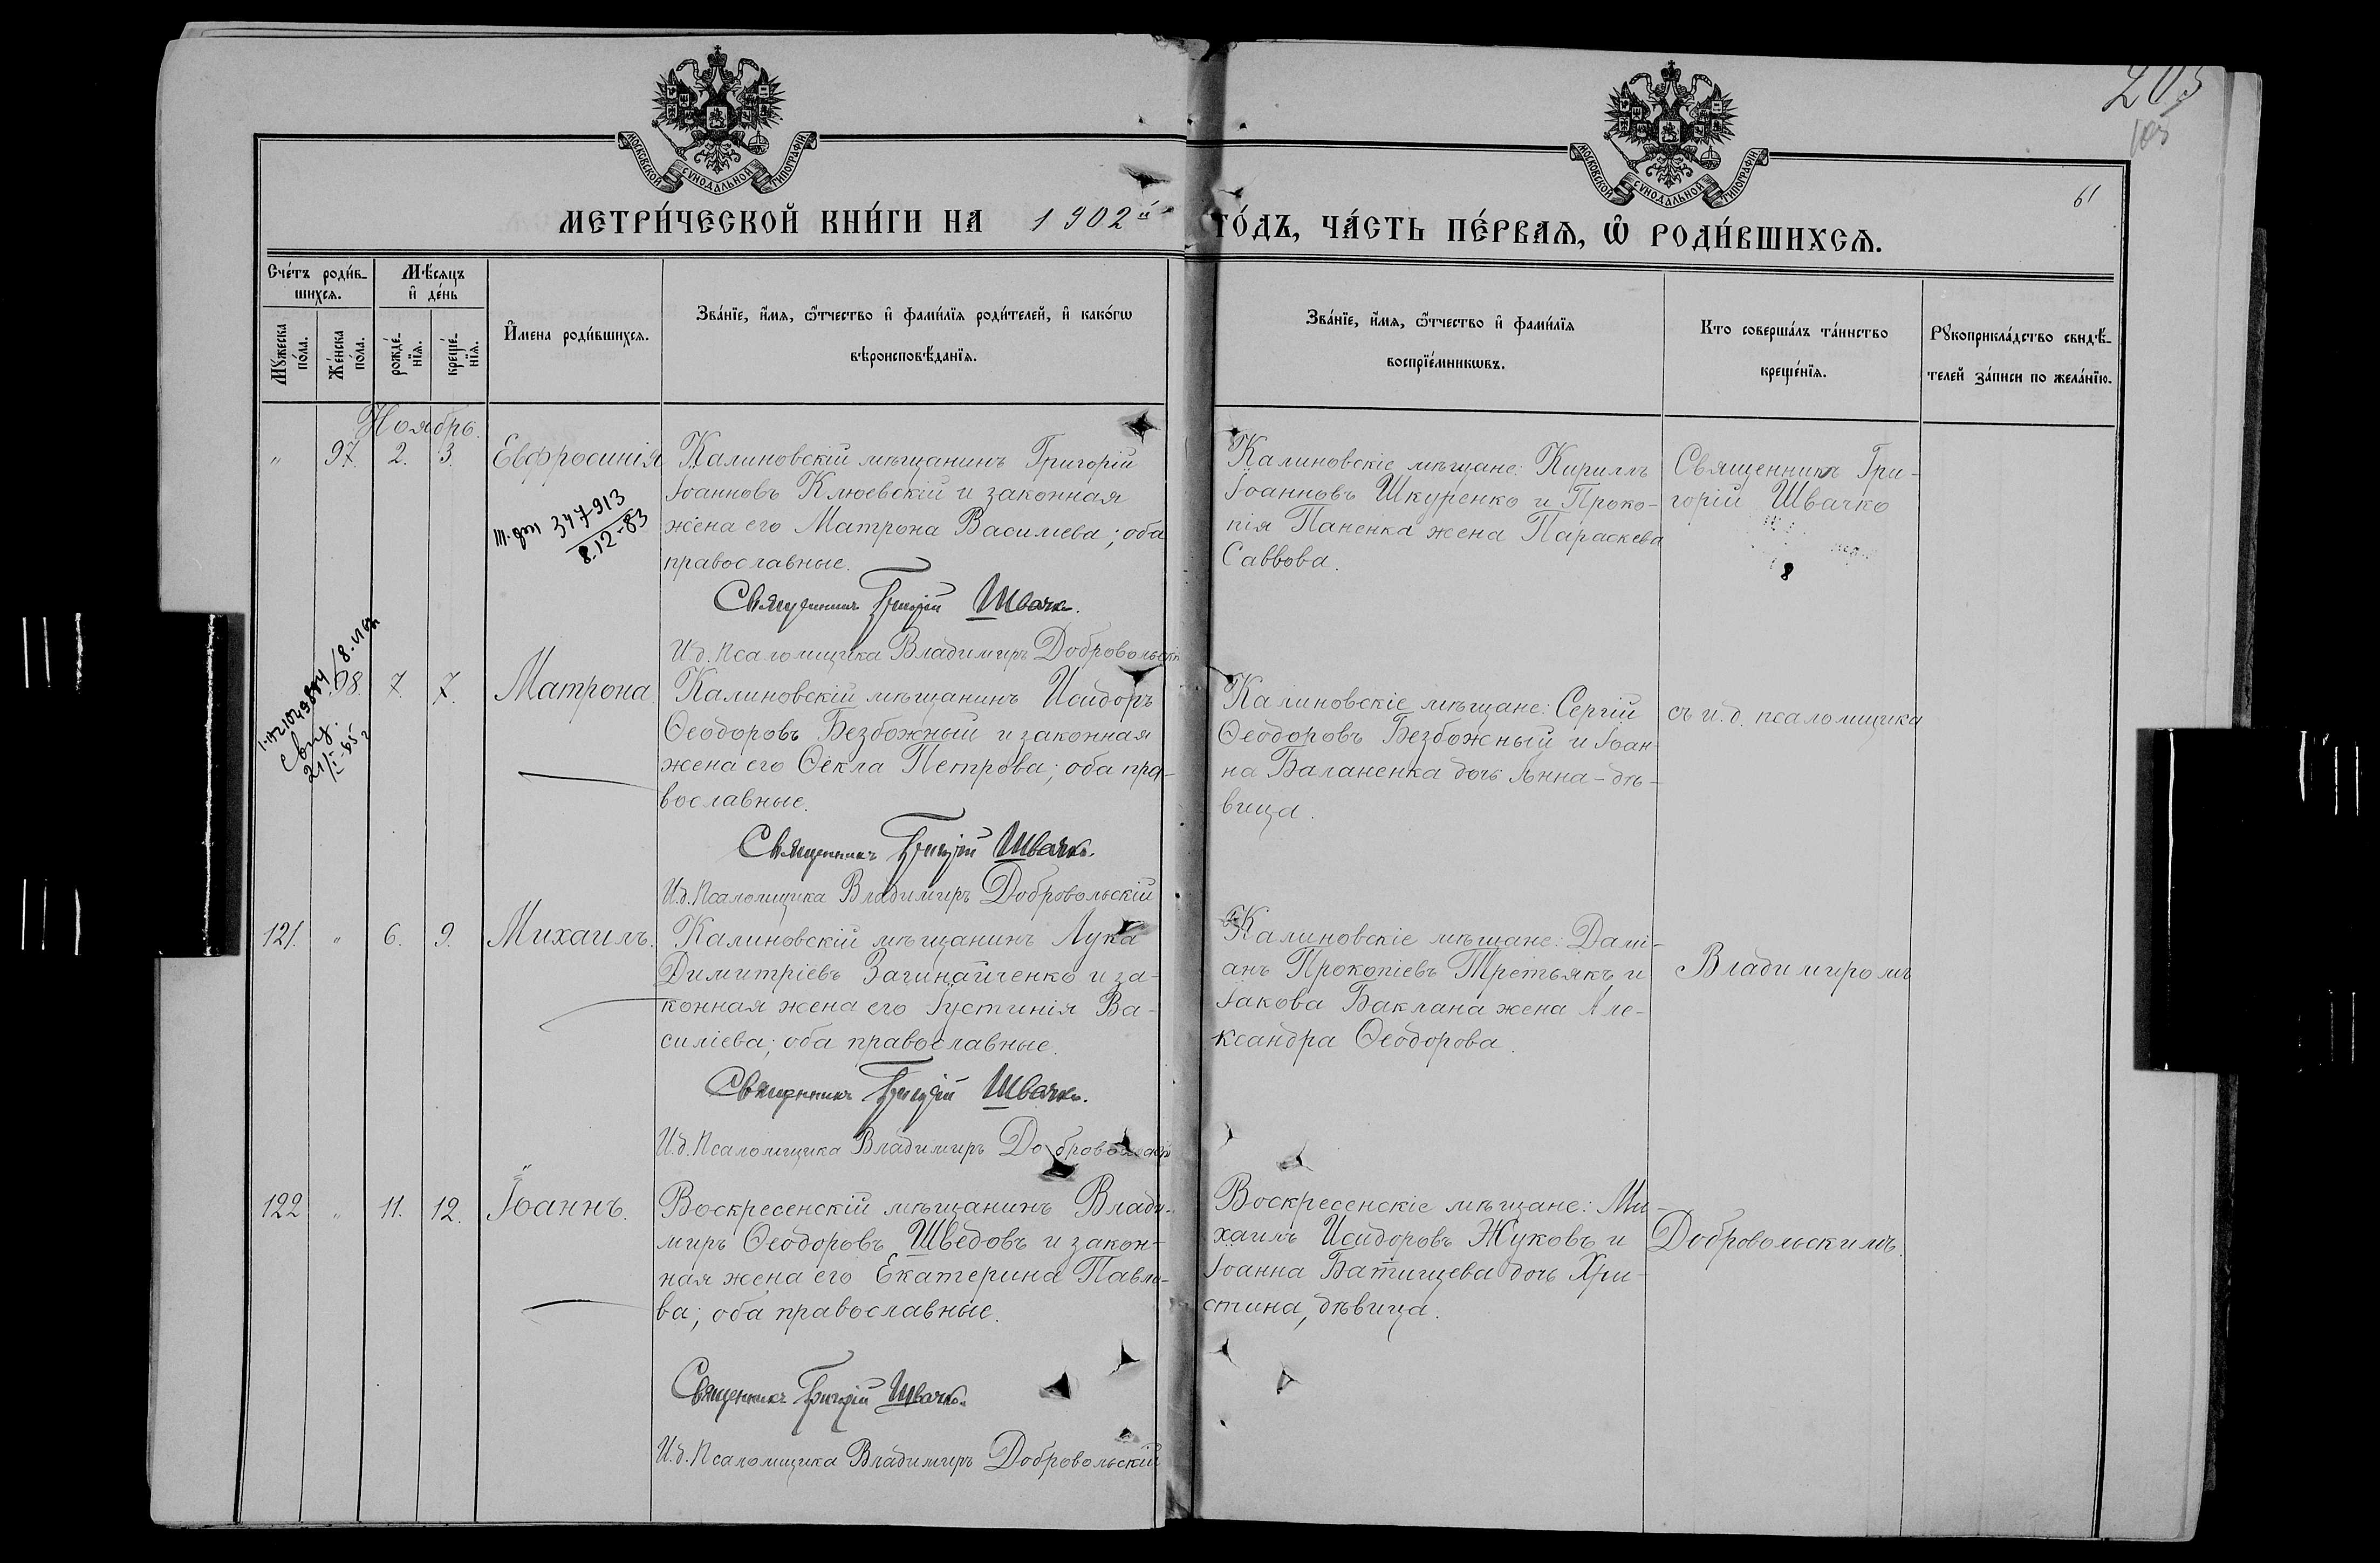 МОСКОВСКОЙ СѴНОДАЛЬНОЙ ТИПОГРАФІИ
МОСКОВСКОЙ СѴНОДАЛЬНОЙ ТИПОГРАФІИ
205
105
61
МЕТРИ́ЧЕСКОЙ КНИ́ГИ НА 1902й ГО́ДЪ, ЧА́СТЬ ПЕ́РВАѦ, Ѡ҆ РОДИ́ВШИХСѦ.
Сче́тъ роди́в-
шихсѧ.
Мꙋжеска по́ла.
Же́нска по́ла.
Мѣ́сѧцъ
и҆ де́нь
рожде́-
нїѧ.
креще́-
нїѧ.
И҆мена роди́вшихсѧ.
Зва́нїе, и҆́мѧ, ѻ҆́тчество и҆ фами́лїѧ роди́телей, и҆ како́гѡ
вѣроисповѣ́данїѧ.
Зва́нїе, и҆́мѧ, ѻ҆́тчество и҆ фами́лїѧ
воспрїе́мникѡвъ.
Кто соверша́лъ та́инство
креще́нїѧ.
Рꙋкоприкла́дство свидѣ́-
телей за́писи по жела́нїю.
Ноябрь.
" 97. 2. 3. Евфросинія
Калиновскій мѣщанинъ Григорій
Іоанновъ Клюевскій и законная
жена его Матрона Василіева; оба
православные.
347913
8.12-83
Священникъ Григорій Швачко.
И.д. Псаломщика Владиміръ Добровольскій
Калиновскіе мѣщане: Кириллъ
Іоанновъ Шкуренко и Проко-
пія Паненка жена Параскева
Саввова.
Священникъ Гри-
горій Швачко
8
98. 7. 7. Матрона.
Калиновскій мѣщанинъ Исидоръ
Ѳеодоровъ Безбожный и законная
жена его Ѳекла Петрова; оба пра-
вославные.
Священникъ Григорій Швачко.
И.д. Псаломщика Владиміръ Добровольскій
Калиновскіе мѣщане: Сергій
Ѳеодоровъ Безбожный и Іоан-
на Баланенка дочь Анна-дѣ-
вица.
съ и.д. псаломщика
121. " 6. 9. Михаилъ.
Калиновскій мѣщанинъ Лука
Димитріевъ Загинайченко и за-
конная жена его Іустинія Ва-
силіева; оба православные.
Священникъ Григорій Швачко.
И.д. Псаломщика Владиміръ Добровольскій
Калиновскіе мѣщане: Дамі-
анъ Прокопіевъ Третьякъ и
Іакова Баклана жена Але-
ксандра Ѳеодорова.
Владиміромъ
122 " 11. 12. Іоаннъ.
Воскресенскій мѣщанинъ Влади-
миръ Ѳеодоровъ Шведовъ и закон-
ная жена его Екатерина Павло-
ва; оба православные.
Священникъ Григорій Швачко.
И.д. Псаломщика Владиміръ Добровольскій
Воскресенскіе мѣщане: Ми-
хаилъ Исидоровъ Жуковъ и
Іоанна Батищева дочь Хри-
стина, дѣвица.
Добровольскимъ.